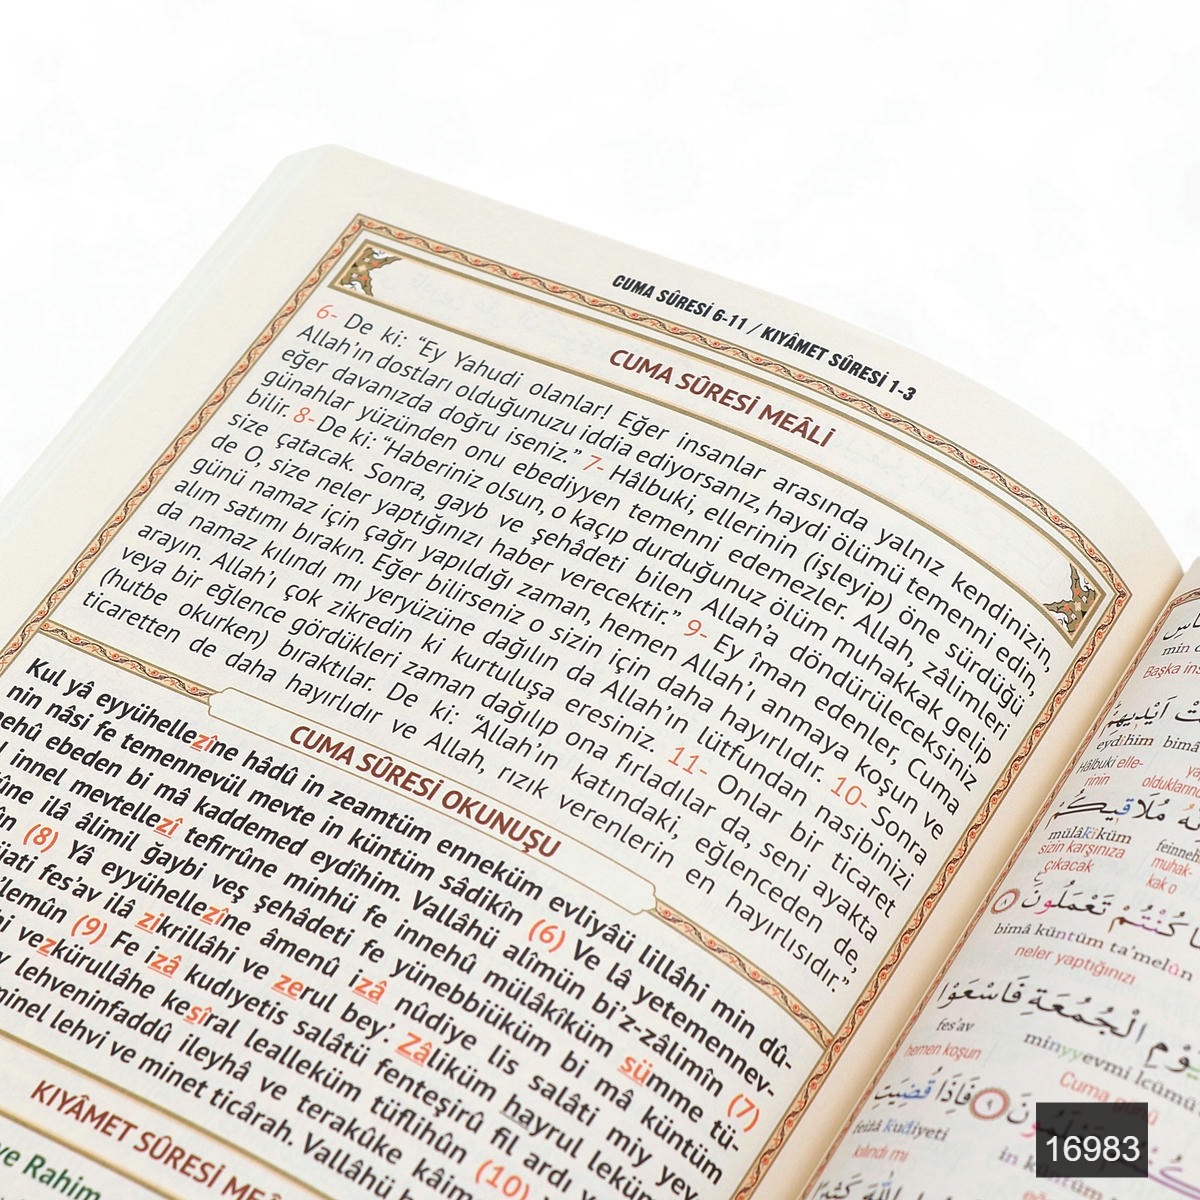 CUMA SÛRESİ 6-11 / KIYÂMET SÛRESİ 1-3
CUMA SÛRESİ MEÂLİ
6- De ki: “Ey Yahudi olanlar! Eğer insanlar arasında yalnız kendinizin,
Allah’ın dostları olduğunuzu iddia ediyorsanız, haydi ölümü temenni edin,
eğer davanızda doğru iseniz.” 7- Hâlbuki, ellerinin (işleyip) öne sürdüğü
günahlar yüzünden onu ebediyyen temenni edemezler. Allah, zâlimleri
bilir. 8- De ki: “Haberiniz olsun, o kaçıp durduğunuz ölüm muhakkak gelip
size çatacak. Sonra, gayb ve şehâdeti bilen Allah’a döndürüleceksiniz
de O, size neler yaptığınızı haber verecektir.” 9- Ey îman edenler, Cuma
günü namaz için çağrı yapıldığı zaman, hemen Allah’ı anmaya koşun ve
alım satımı bırakın. Eğer bilirseniz o sizin için daha hayırlıdır. 10- Sonra
da namaz kılındı mı yeryüzüne dağılın da Allah’ın lütfundan nasibinizi
arayın. Allah’ı çok zikredin ki kurtuluşa eresiniz. 11- Onlar bir ticaret
veya bir eğlence gördükleri zaman dağılıp ona fırladılar da, seni ayakta
(hutbe okurken) bıraktılar. De ki: “Allah’ın katındaki, eğlenceden de,
ticaretten de daha hayırlıdır ve Allah, rızık verenlerin en hayırlısıdır.”
CUMA SÛRESİ OKUNUŞU
Kul yâ eyyühellezîne hâdû in zeamtüm enneküm evliyâü lillâhi min dû-
nin nâsi fe temennevül mevte in küntüm sâdikîn (6) Ve lâ yetemennev-
nehû ebeden bi mâ kaddemed eydîhim. Vallâhü alîmün bi’z-zâlimîn (7)
innel mevtellezî tefirrûne minhü fe innehû mülâkîküm sümme tü-
ûne ilâ âlimil ğaybi veş şehâdeti fe yünebbiüküm bi mâ küntüm
(8) Yâ eyyühellezîne âmenû izâ nûdiye lis salâti miy yev
fes’av ilâ zikrillâhi ve zerul bey’. Zâliküm hayrul leküm
(9) Fe izâ kudıyetis salâtü fenteşirû fil ardı
vezkürullâhe kesîral lealleküm tüflihûn (10)
lehveninfaddû ileyhâ ve terakûke kâim
minel lehvi ve minet ticârah. Vallâhü
KIYÂMET SÛRESİ MEÂ
Rahim
min
Başka
اَيْدِيهِمْ
eydîhim bimâ
Hâlbuki elle-
rinin
olduklarınd
مُلَاقِيكُمْ
mülâkîküm feinneh
sizin karşınıza
çıkacak
muhak-
kak o
كُنْتُمْ تَعْمَلُونَ
bimâ küntüm ta’melûn
neler yaptığınızı
الْجُمُعَةِ فَاسْعَوْا
fes’av minyyevmi lcümü
hemen koşun
Cuma günü
فَاِذَا قُضِيَتِ
feizâ kudiyeti
kılındı mı
16983